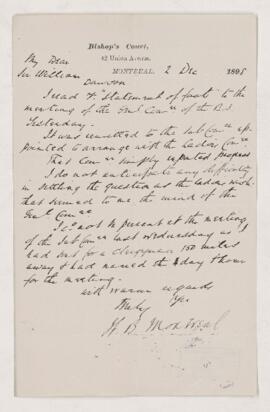 Bishop's Court,
42 Union Avenue,
MONTREAL. 2 Dec 1895
My Dear
Sir William
Dawson
I read yr "statement of facts" to the
meeting of the Genl Comee of the B.S.
Yesterday.
It was remitted to the Sub Comee ap-
pointed to arrange with the Ladies Comee
That Comee simply reported progress
I do not anticipate any difficulty
in settling the question as the Ladies wish.
that seemed to me the mind of the
Genl Comee
I cd not be present at the meeting
of the Sub Comee last Wednesday as I
had sent for a clergyman 150 miles
away & had named the day & hour
for the meeting.
with warm regards
Truly Yrs
W. B. Montreal